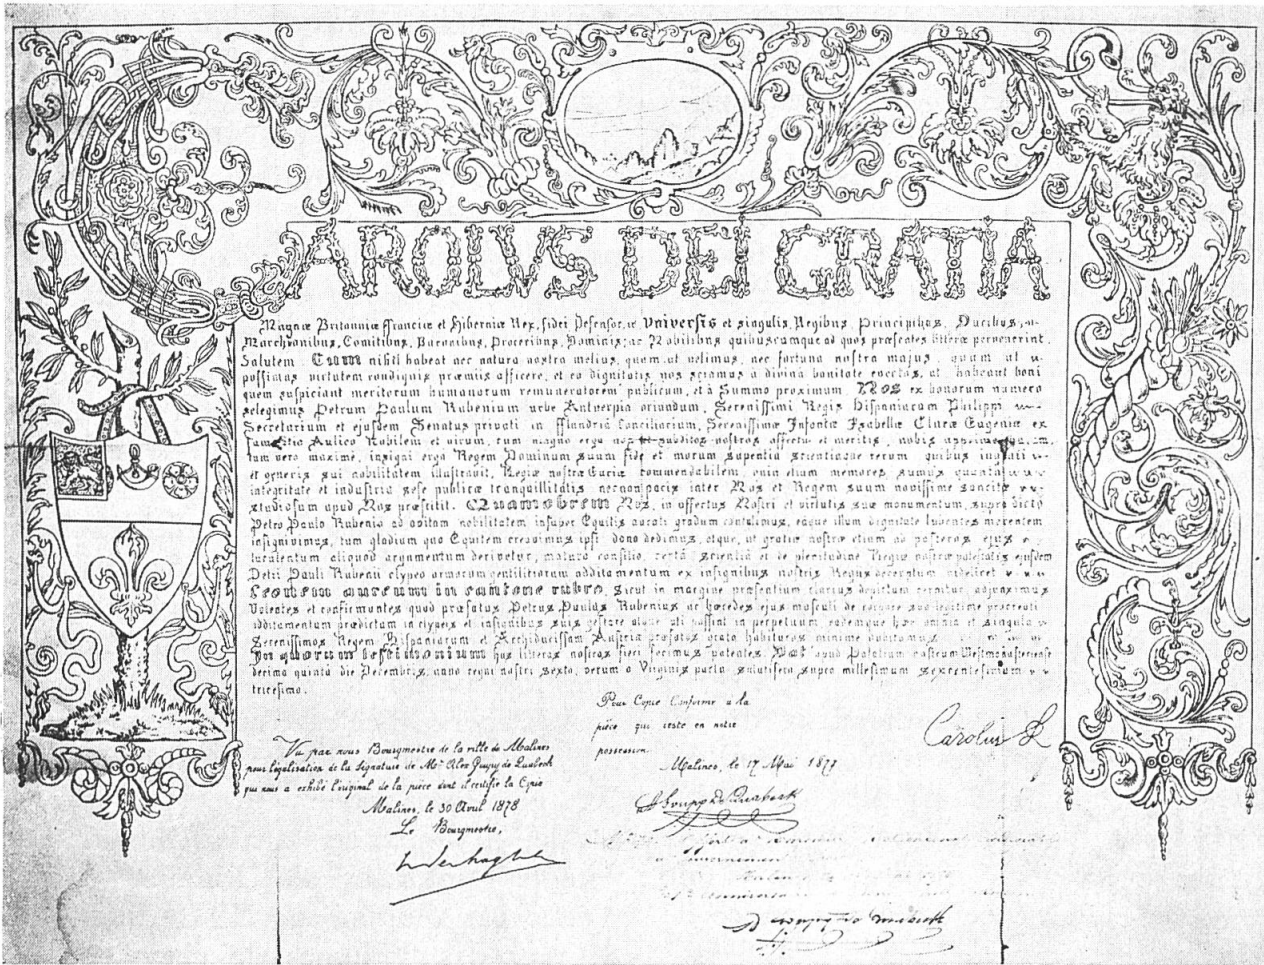 CAROLVS DEI GRATIA
Magnæ Britanniæ ffranciæ et Hiberniæ Rex, fidei Defensor, &c Vniversis et singulis, Regibus, Principibus, Ducibus,
Marchionibus, Comitibus, Baronibus, Proceribus, Dominis, ac Nobilibus quibuscumque ad quos præsentes litteræ pervenerint
Salutem. Cum nihil habeat nec natura nostra melius, quam ut velimus, nec fortuna nostra majus, quam ut
possimus virtutem condignis præmiis afficere, et eo dignitatis nos sciamus à divina bonitate evectos, ut habeant boni
quem suspiciant meritorum humanorum remuneratorem publicum, et à Summo proximum Nos ex bonorum numero
selegimus Petrum Paulum Rubenium urbe Antverpia oriundum, Serenissimi Regis Hispaniarum Philippi
Secretarium et ejusdem Senatus privati in fflandria Conciliarium, Serenissimæ Infantis Isabellæ Claræ Eugeniæ ex
famulitio Aulico Nobilem et virum, cum magno ergo nos et subditos nostros affectu et meritis, nobis
tum vero maxime, insigni ergo Regem Dominum suum fide et morum sapentia scientiaque rerum quibus ingenii
et generis sui nobilitatem illustravit, Regiæ nostræ Curiæ commendabilem, enim etiam memores sumus quanta
integritate et industria sese publicæ tranquillitatis necnon pacis inter Nos et Regem suum novissime sancitæ
studiosum apud Nos præstitit. Quamobrem Nos, in affectus Nostri et virtutis suæ monumentum, supra dicto
Petro Paulo Rubenio ad avitam nobilitatem insuper Equitis aurati gradum contulimus, eaque illum dignitate lubentes merentem
insignivimus, tum gladium quo Equitem creavimus ipsi dono dedimus, atque, ut gratiæ nostræ etiam ad posteros ejus
luculentum aliquod argumentum derivetur, maturo consilio, certâ scientiâ et de plenitudine Regiæ nostræ potestatis ejusdem
Petri Pauli Rubenii clypeo armorum gentilitiorum additamentum ex insignibus nostris Regiis decerptum videlicet
Leonem aureum in cantone rubro, sicut in margine præsentium clarius depictum cernitur, adjunximus
Volentes et confirmantes quod præfatus Petrus Paulus Rubenius ac hæredes ejus masculi de corpore suo legitime procreati
additamentum prædictum in clypeis et insignibus suis gestare atque uti possint in perpetuum eademque hæc omnia et singula
Serenissimos Regem Hispaniarum et Archiducissam Austriæ præfatos grata habituros minime dubitamus
In quorum testimonium has literas nostras fieri fecimus patentes. Dat' apud Palatium nostrum Westmonasteriense
decimo quinto die Decembris, anno regni nostri sexto, verum a Virginis partu salutifero supra millesimum sexcentesimum
tricesimo.
Pour Copie Conforme à la
pièce qui reste en notre
possession.
Malines, le 17 Mai 1877
Carolus R
Vu par nous Bourgmestre de la ville de Malines
pour légalisation de la Signature de Mr. Alex
qui nous a exhibé l'original de la pièce dont il certifie la Copie
Malines, le 30 Avril 1878
Le Bourgmestre,